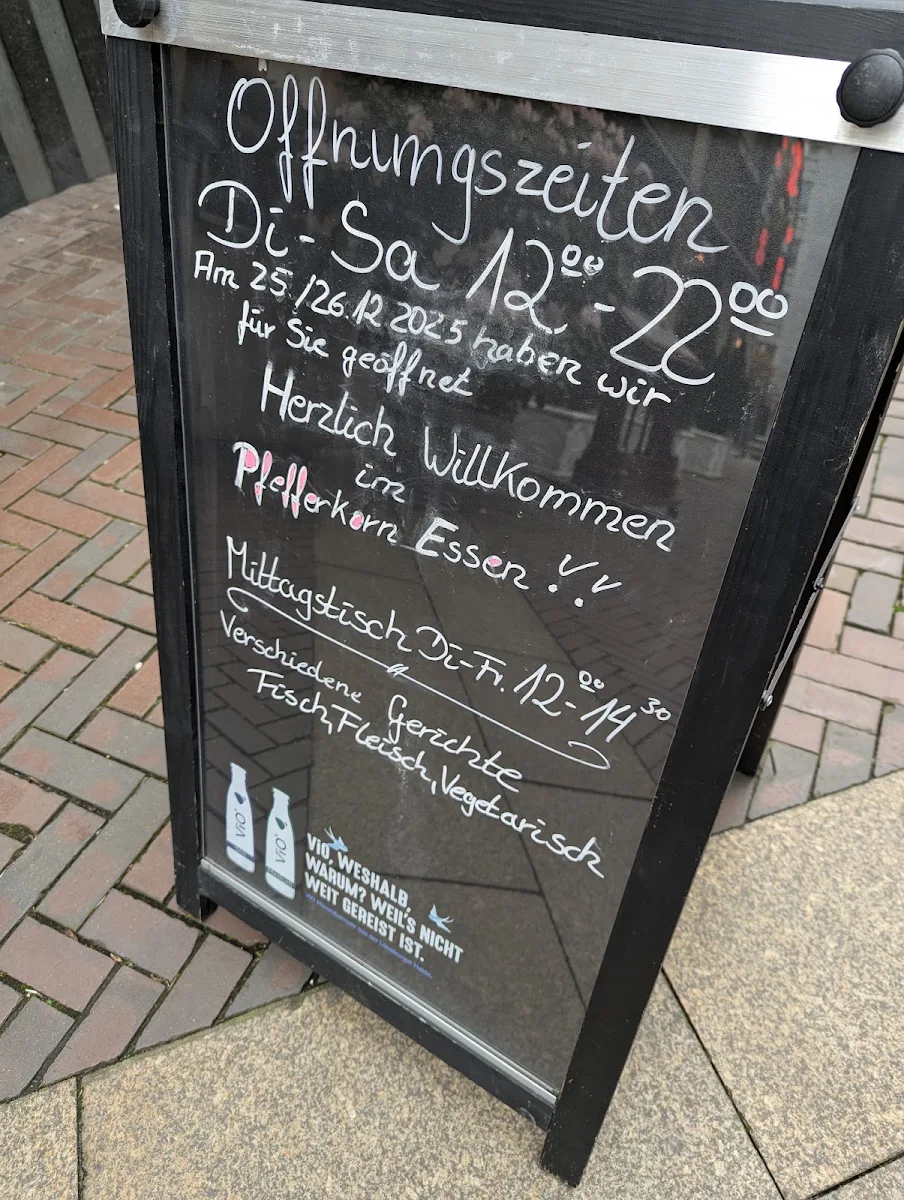 Öffnungszeiten
Di - Sa 12⁰⁰ - 22⁰⁰
Am 25./26.12 2025 haben wir
für Sie geöffnet
Herzlich Willkommen
im
Pfefferkorn Essen !!
Mittagstisch Di-Fr. 12⁰⁰-14³⁰
Verschiedene Gerichte
Fisch, Fleisch, Vegetarisch
ViO
ViO
ViO, WESHALB,
WARUM? WEIL'S NICHT
WEIT GEREIST IST.